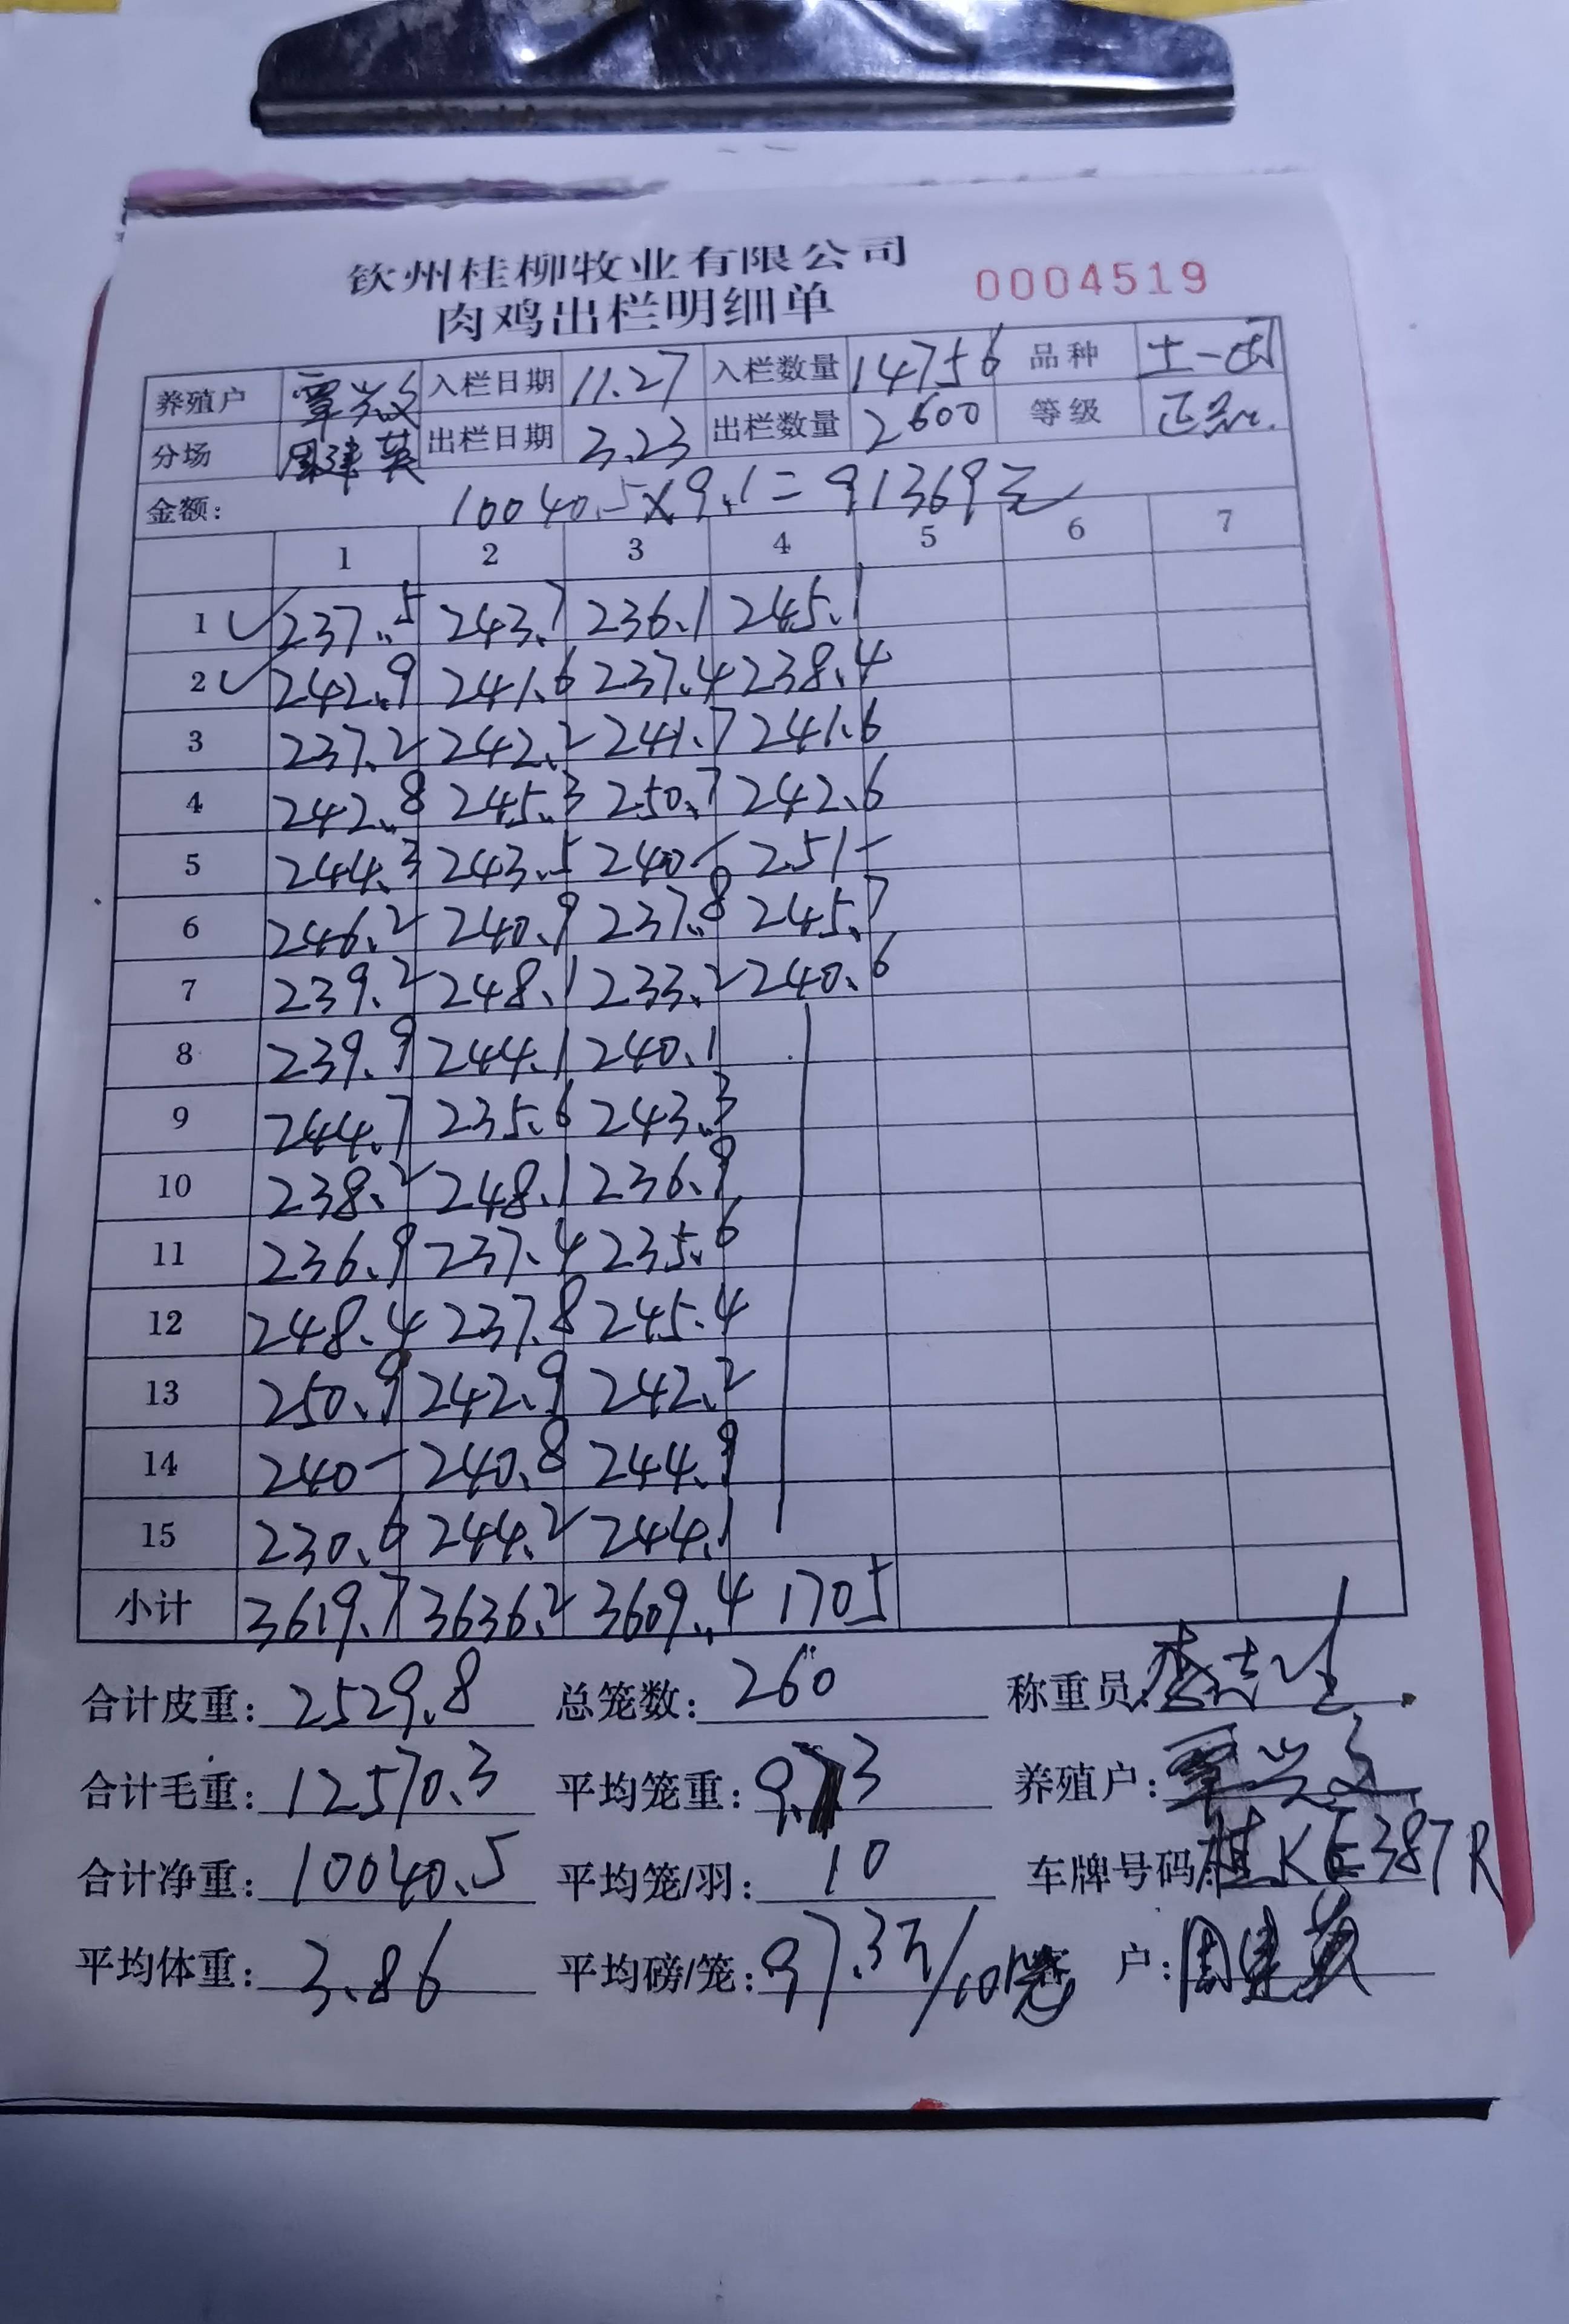 钦州桂柳牧业有限公司
肉鸡出栏明细单 0004519
养殖户 覃兴文 入栏日期 11.27 入栏数量 14756 品种 土一
分场 周建英 出栏日期 3.23 出栏数量 2600 等级 正品
金额: 10040.5×9.1=91369元
1 2 3 4 5 6 7
1 237.5 243.7 236.1 245.1
2 242.9 241.6 237.4 238.4
3 237.2 242.2 241.7 241.6
4 242.8 245.3 250.7 242.6
5 244.3 243.5 240- 251-
6 246.2 240.9 237.8 245.7
7 239.2 248.1 233.2 240.6
8 239.9 244.1 240.1
9 244.7 235.6 243.3
10 238.2 248.1 236.9
11 236.9 237.4 235.6
12 248.4 237.8 245.4
13 250.9 242.9 242.2
14 240- 240.8 244.9
15 230.6 244.2 244.1
小计 3619.7 3636.2 3609.4 1705
合计皮重: 2529.8 总笼数: 260 称重员:
合计毛重: 12570.3 平均笼重: 9.73 养殖户: 覃兴文
合计净重: 10040.5 平均笼/羽: 10 车牌号码: 桂KE387R
平均体重: 3.86 平均磅/笼: 97.3斤/10笼 户: 周建英